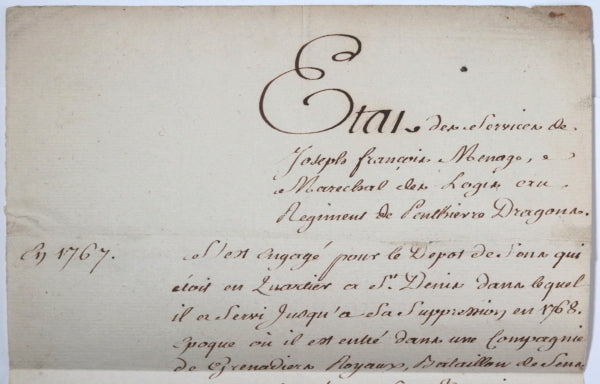 Etat des Services de
Joseph françois Menage,
Marechal des Logis au
Regiment de Penthievre Dragons.
En 1767.
S'est engagé pour le Depot de Sens qui
étoit en Quartier a St. Denis dans lequel
il a Servi Jusqu'a Sa Suppression, en 1768.
epoque où il est entré dans une Compagnie
de Grenadiers Royaux, Bataillon de Sens